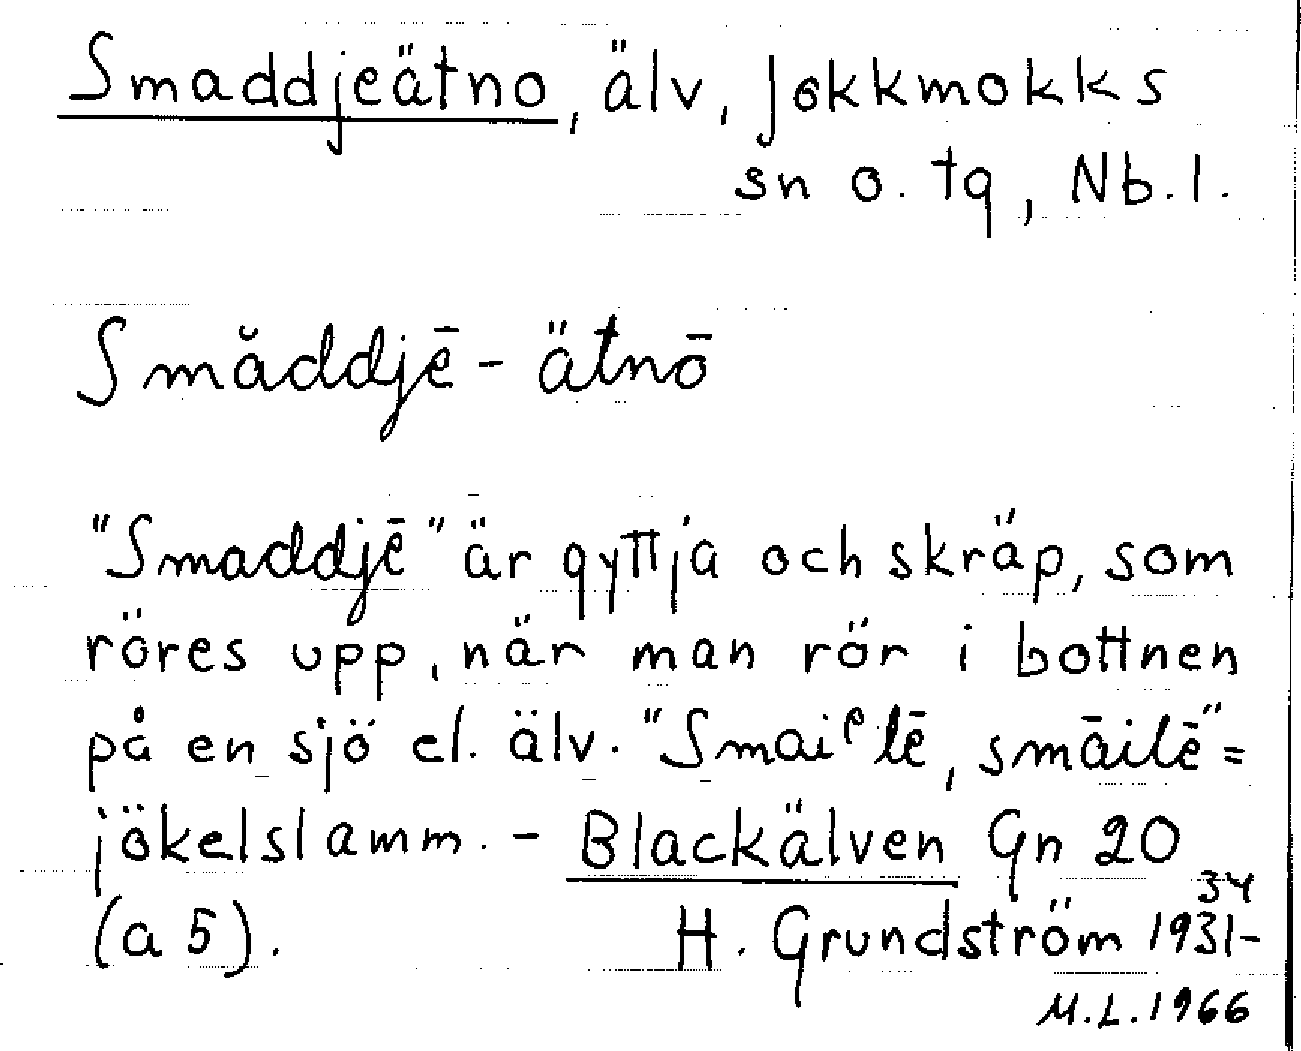 Smaddjeätno, älv, Jokkmokks
sn o. tg, Nb. l.
Smăddjē - ätnō
"Smaddjē" är gyttja och skräp, som
röres upp, när man rör i bottnen
på en sjö el. älv. "Smaiᵉlē, smāilē" =
jökelslamm. - Blackälven Gn 20
(a 5). H. Grundström 1931-34
M.L. 1966